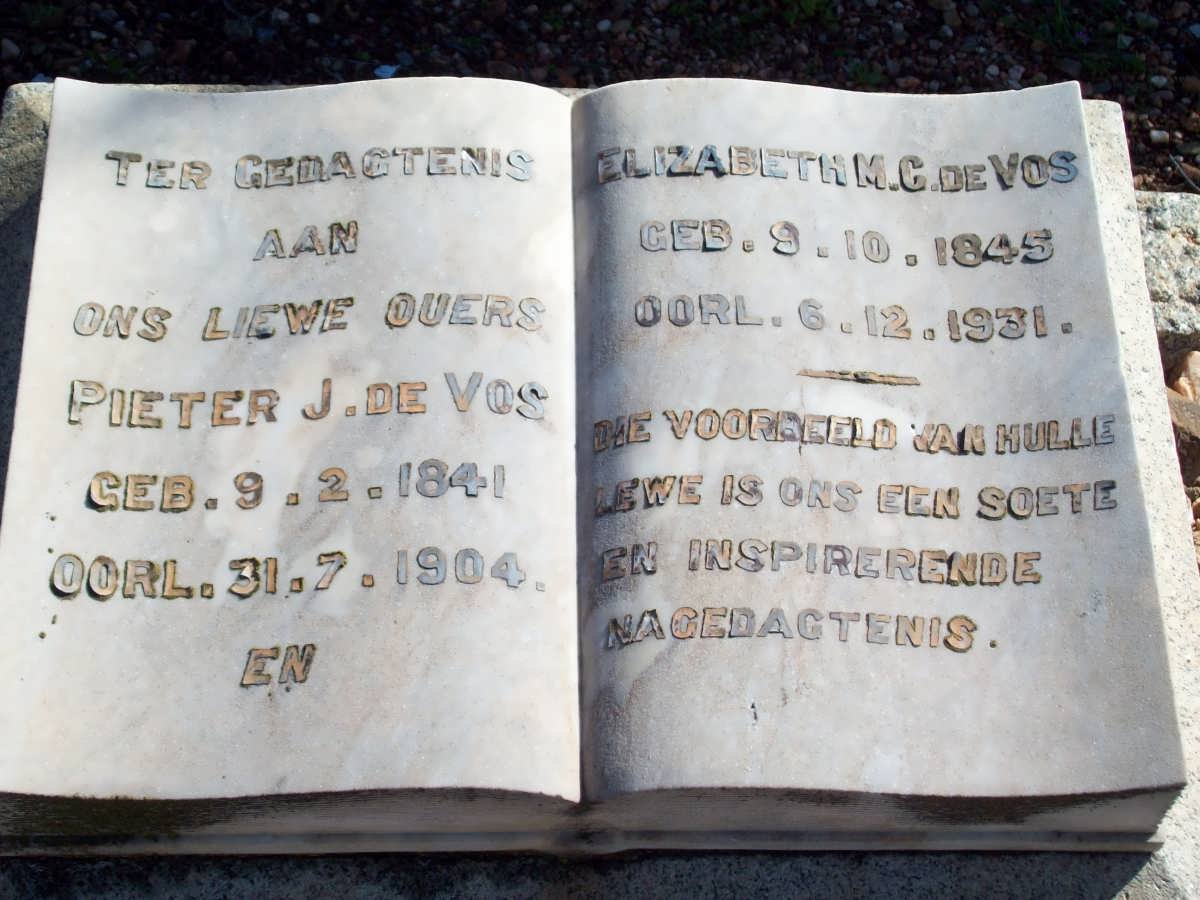 TER GEDAGTENIS
AAN
ONS LIEWE OUERS
PIETER J. DE VOS
GEB. 9. 2. 1841
OORL. 31. 7. 1904.
EN
ELIZABETH M. C. DE VOS
GEB. 9. 10. 1845
OORL. 6. 12. 1931.
DIE VOORBEELD VAN HULLE
LEWE IS ONS EEN SOETE
EN INSPIRERENDE
NAGEDAGTENIS.